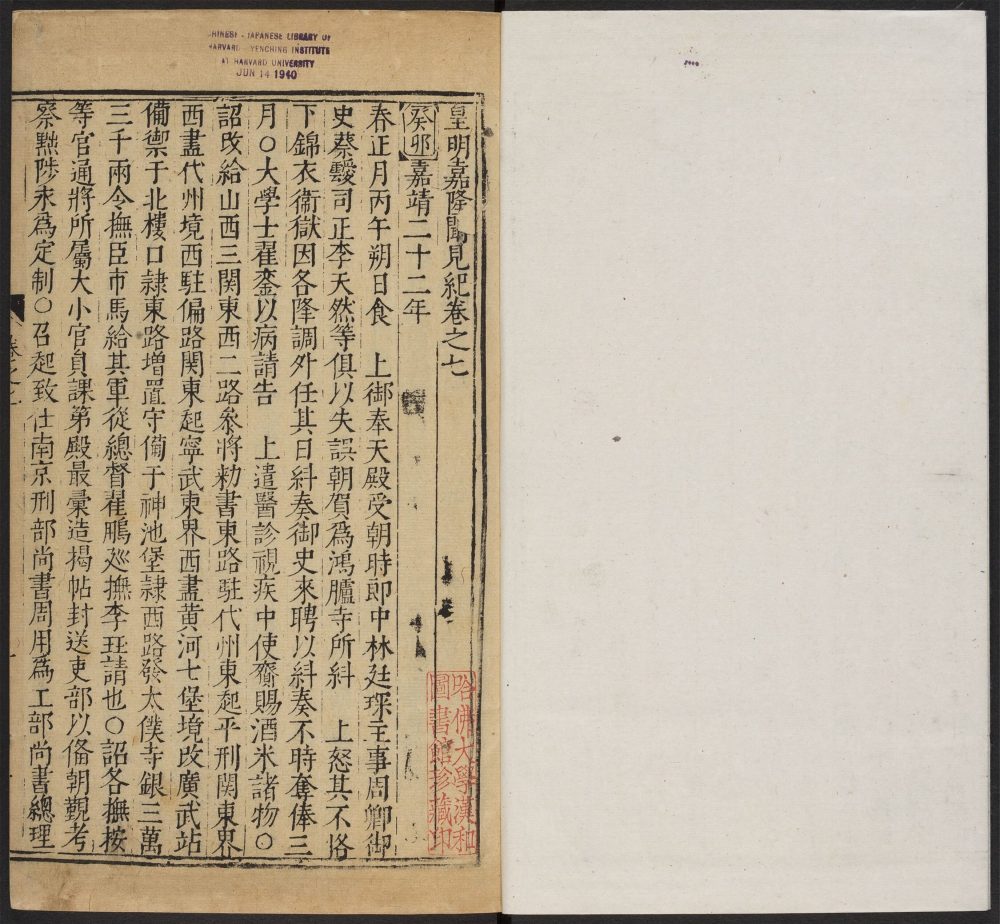 CHINESE - JAPANESE LIBRARY OF
HARVARD - YENCHING INSTITUTE
AT HARVARD UNIVERSITY
JUN 14 1940
皇明嘉隆聞見紀卷之七
癸卯嘉靖二十二年
春正月丙午朔日食　上御奉天殿受朝時郎中林廷琛主事周卿御
史蔡靉司正李天然等俱以失誤朝賀爲鴻臚寺所糾　上怒其不恪
下錦衣衞獄因各降調外任其日糾奏御史來聘以糾奏不時奪俸三
月○大學士翟鑾以病請告　上遣醫診視疾中使賫賜酒米諸物○
詔改給山西三関東西二路叅將勑書東路駐代州東起平刑関東界
西盡代州境西駐偏路関東起寧武東界西盡黄河七堡境改廣武站
備禦于北樓口隷東路增置守備于神池堡隷西路發太僕寺銀三萬
三千兩令撫臣市馬給其軍從總督翟鵬廵撫李珏請也○詔各撫按
等官通將所屬大小官員課第殿最彙造揭帖封送吏部以俻朝覲考
察黜陟永爲定制○召起致仕南京刑部尚書周用爲工部尚書總理
哈佛大學漢和
圖書館珍藏印